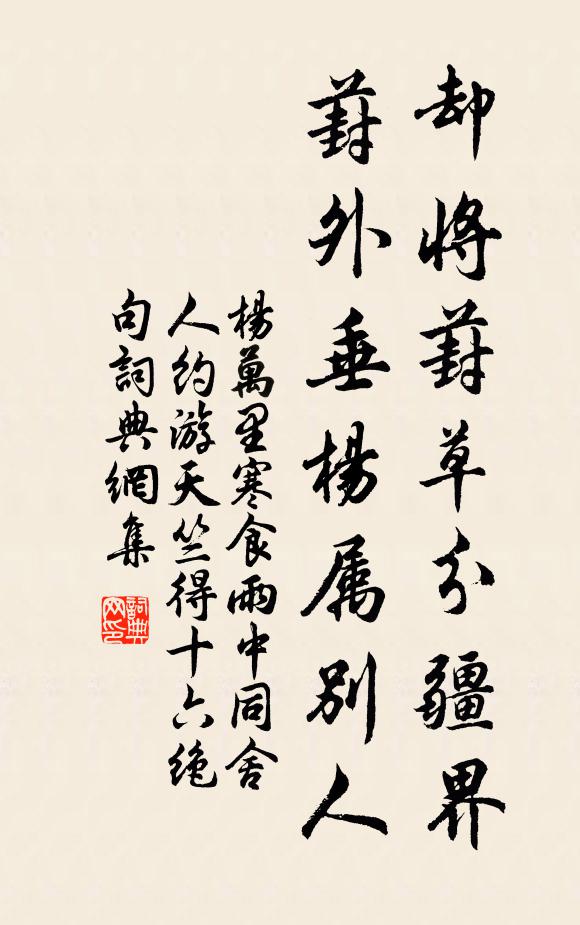 却將葑草分疆界
葑外垂楊属别人
楊萬里寒食雨中同舍
人約游天竺得十六絶
句詞典網集
詞典网印